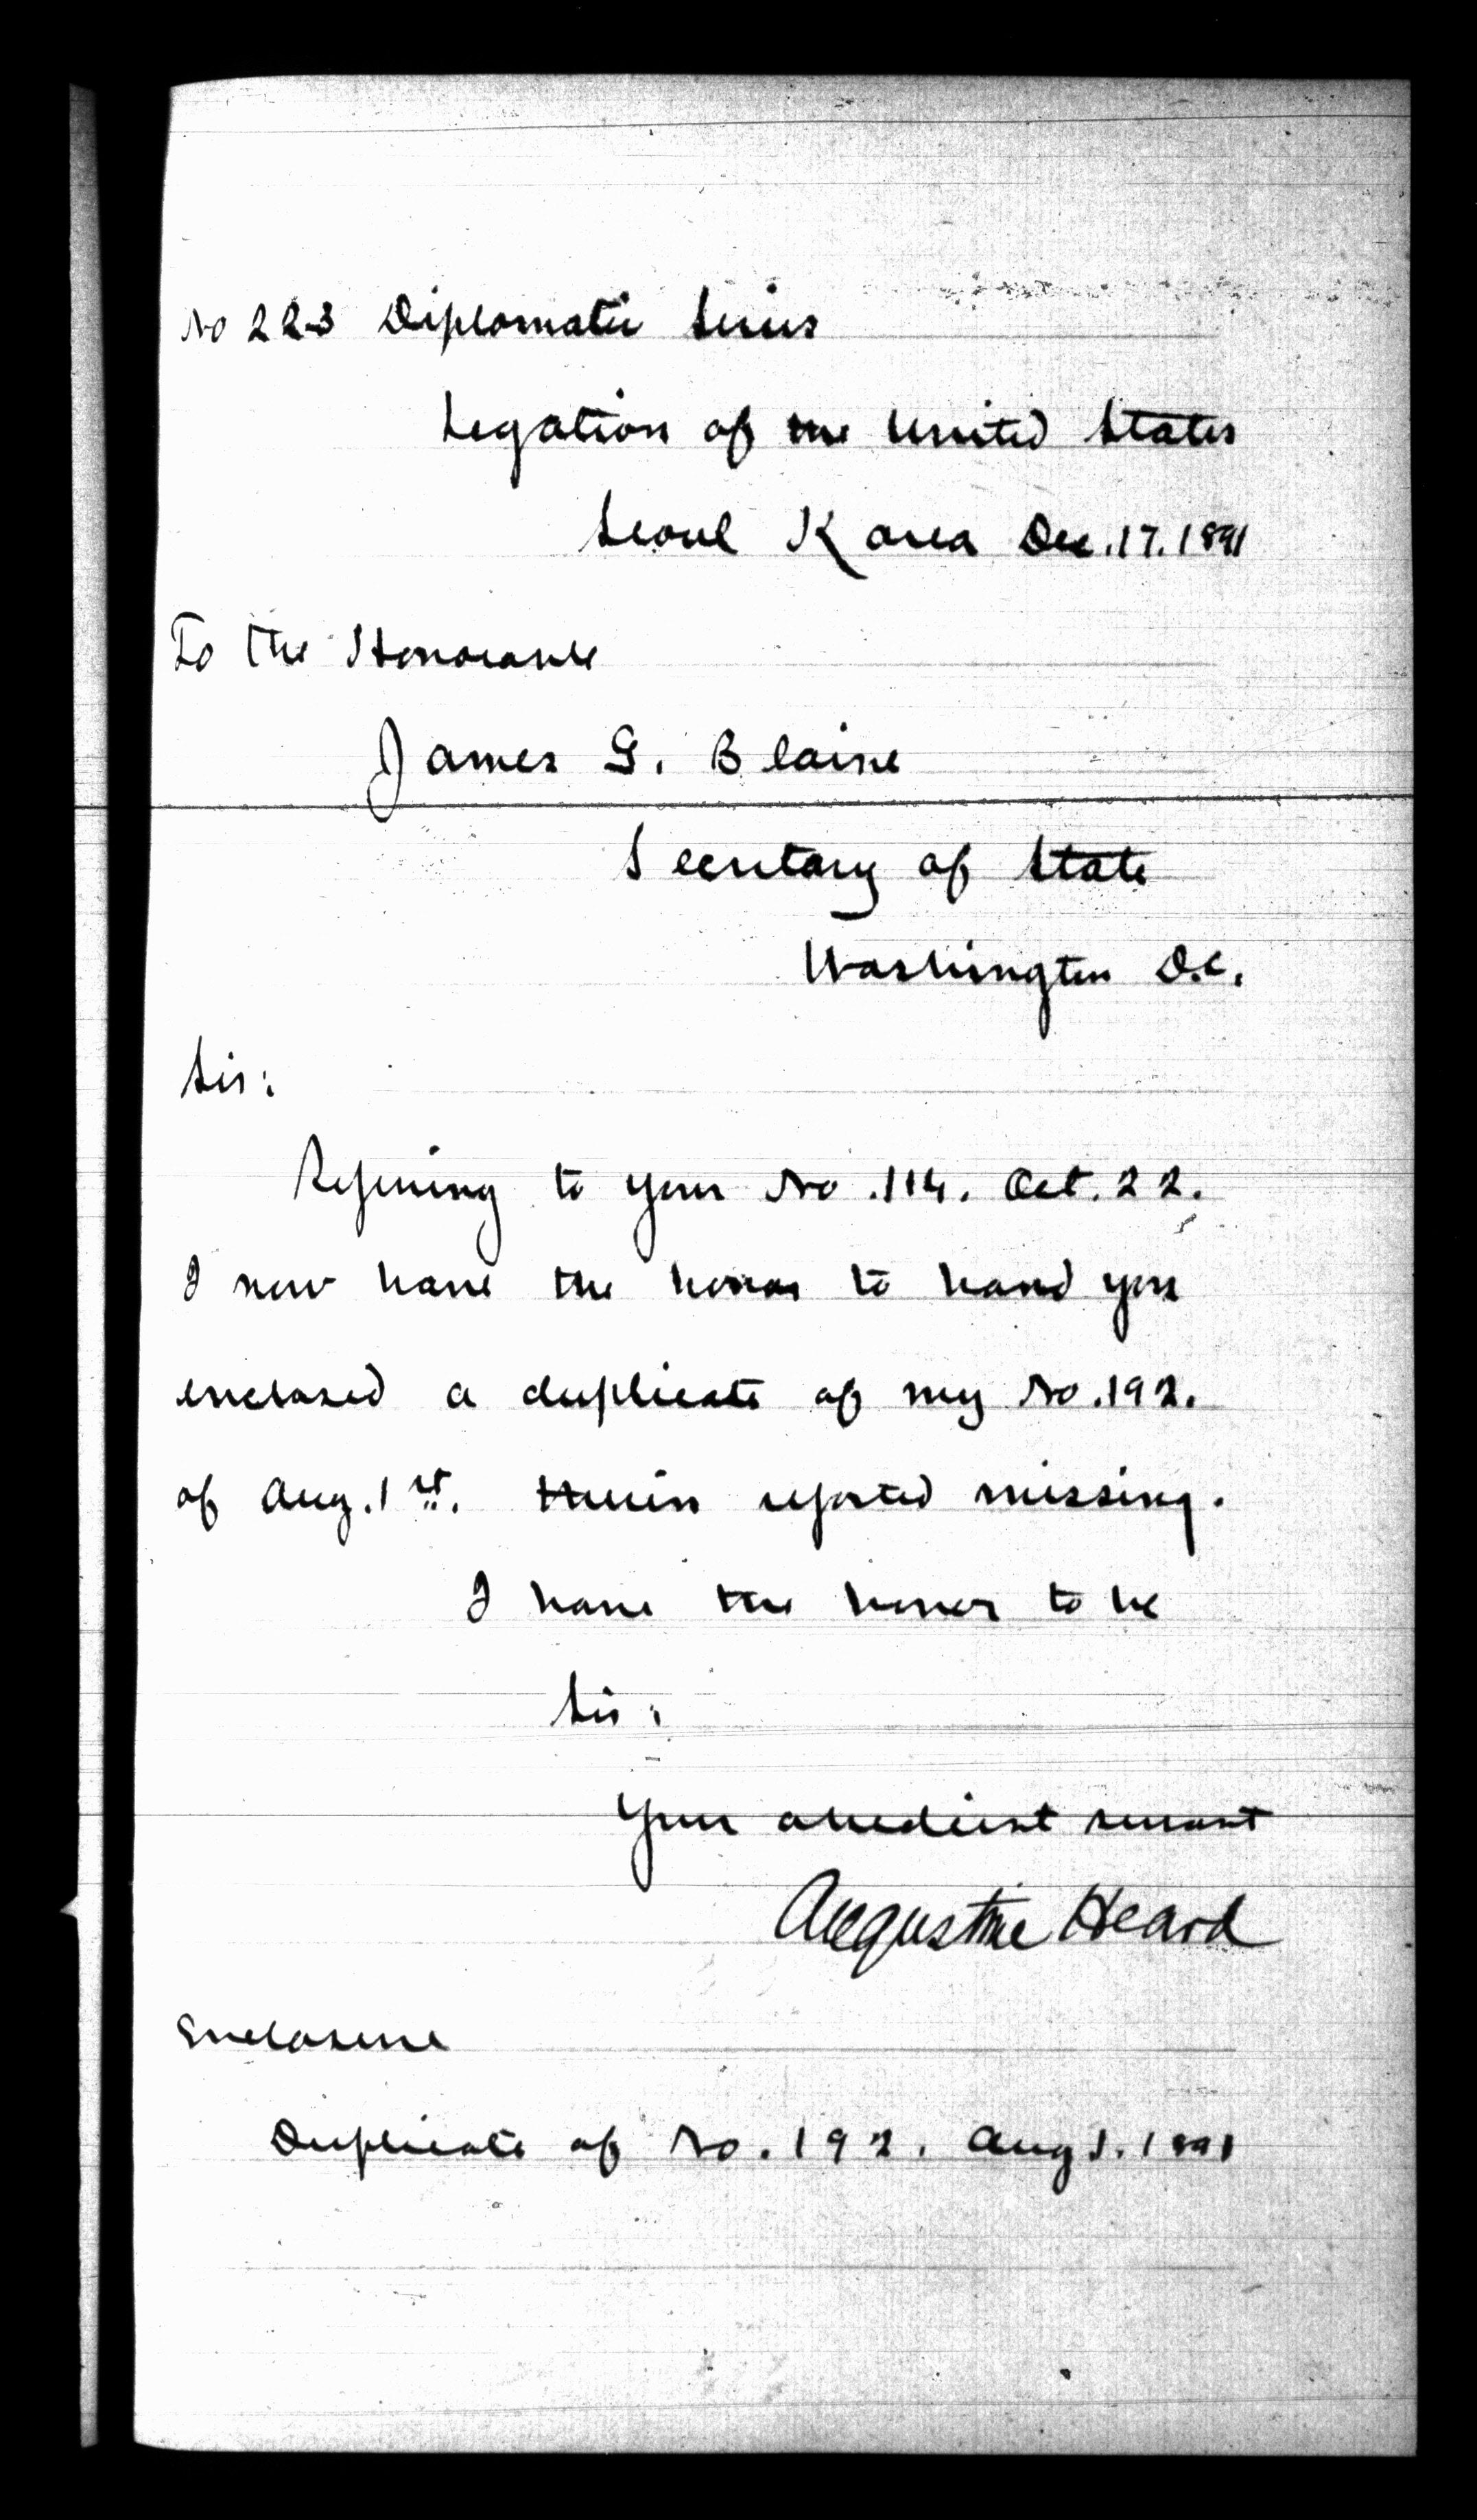 No 223 Diplomatic Series
Legation of the United States
Seoul Korea Dec. 17. 1891
To the Honorable
James G. Blaine
Secretary of State
Washington D.C.
Sir:
Referring to your No. 114. Oct. 22.
I now have the honor to hand you
enclosed a duplicate of my No. 192.
of Aug. 1st. therein reported missing.
I have the honor to be
Sir:
Your obedient servant
Augustine Heard
Enclosure
Duplicate of No. 192. Aug 1. 1891